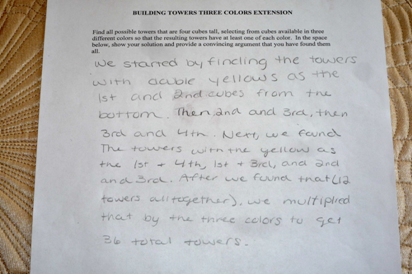 BUILDING TOWERS THREE COLORS EXTENSION
Find all possible towers that are four cubes tall, selecting from cubes available in three
different colors so that the resulting towers have at least one of each color. In the space
below, show your solution and provide a convincing argument that you have found them
all.
We started by finding the towers
with double yellows as the
1st and 2nd cubes from the
bottom. Then 2nd and 3rd, then
3rd and 4th. Next, we found
The towers with the yellow as
the 1st + 4th, 1st + 3rd, and 2nd
and 3rd. After we found that (12
towers alltogether), we multiplied
that by the three colors to get
36 total towers.